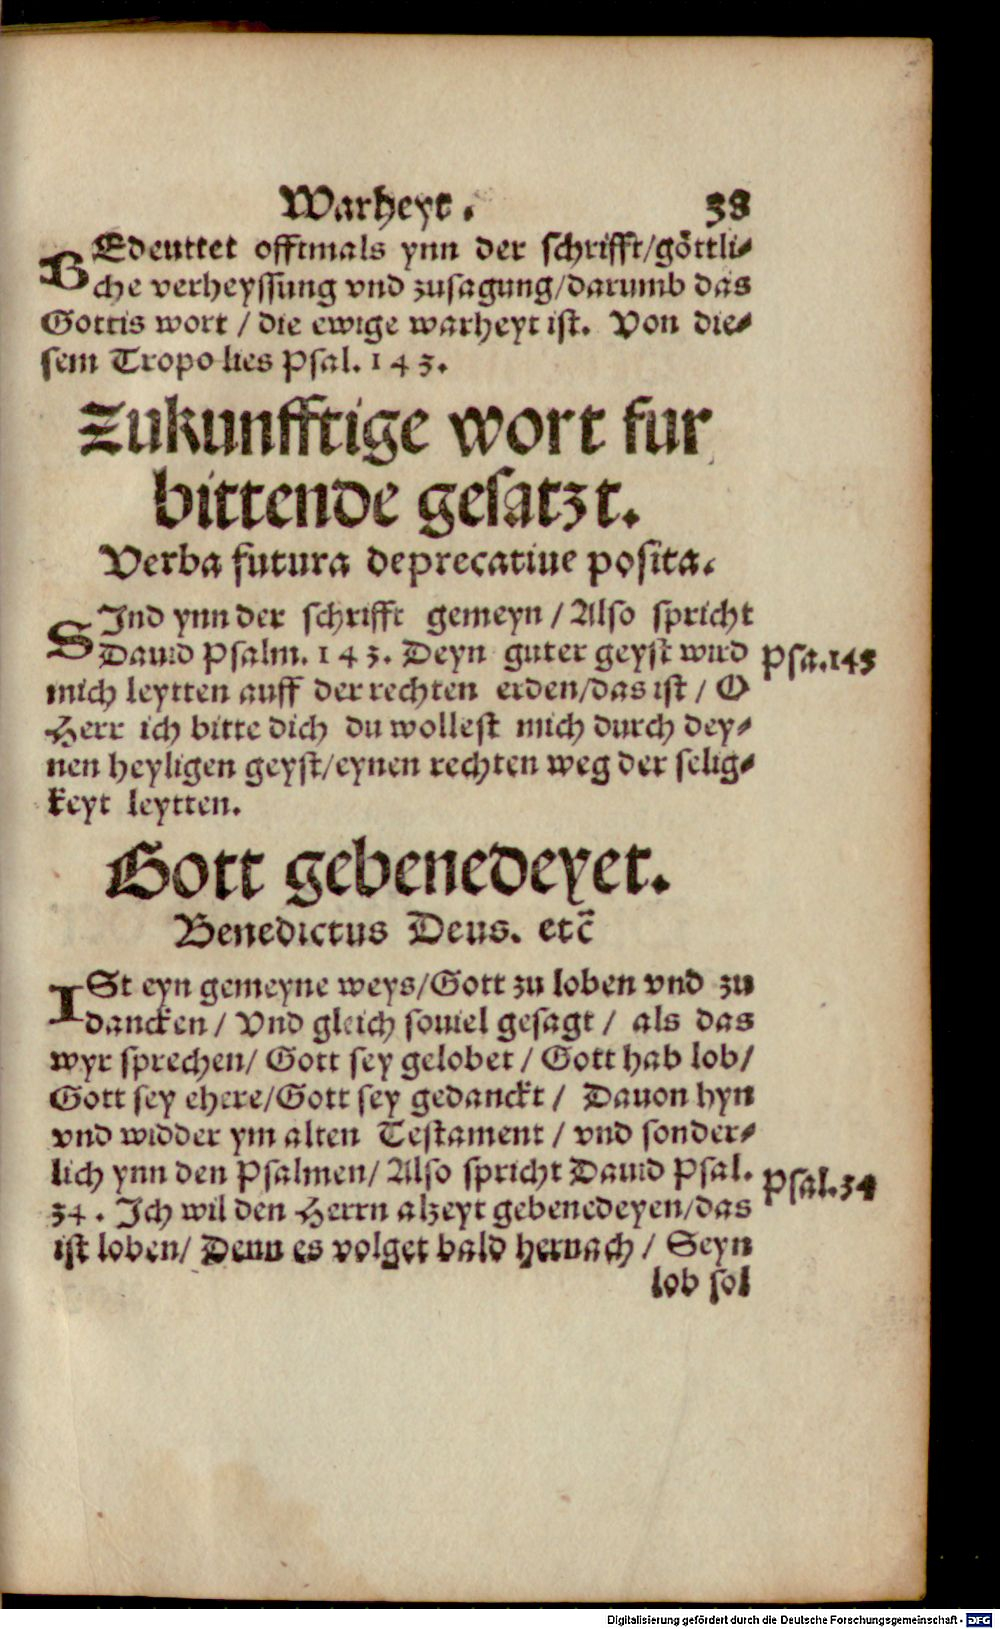 Warheyt. 38
BEdeuttet offtmals ynn der schrifft/göttli⸗
che verheyssung vnd zusagung/darumb das
Gottis wort / die ewige warheyt ist. Von die⸗
sem Tropo lies Psal. 143.
Zukunfftige wort fur
bittende gesatzt.
Verba futura deprecatiue posita.
SInd ynn der schrifft gemeyn / Also spricht
Dauid Psalm. 143. Deyn guter geyst wird Psa.143
mich leytten auff der rechten erden/das ist / O
Herr ich bitte dich du wollest mich durch dey⸗
nen heyligen geyst/eynen rechten weg der selig⸗
keyt leytten.
Gott gebenedeyet.
Benedictus Deus. etc̄
ISt eyn gemeyne weys/Gott zu loben vnd zu
dancken / Vnd gleich souiel gesagt / als das
wyr sprechen/ Gott sey gelobet / Gott hab lob/
Gott sey ehere/Gott sey gedanckt / Dauon hyn
vnd widder ym alten Testament / vnd sonder⸗
lich ynn den Psalmen/ Also spricht Dauid Psal. Psal.34
34. Ich wil den Herrn alzeyt gebenedeyen/das
ist loben/ Denn es volget bald hernach / Seyn
lob sol
Digitalisierung gefördert durch die Deutsche Forschungsgemeinschaft - DFG